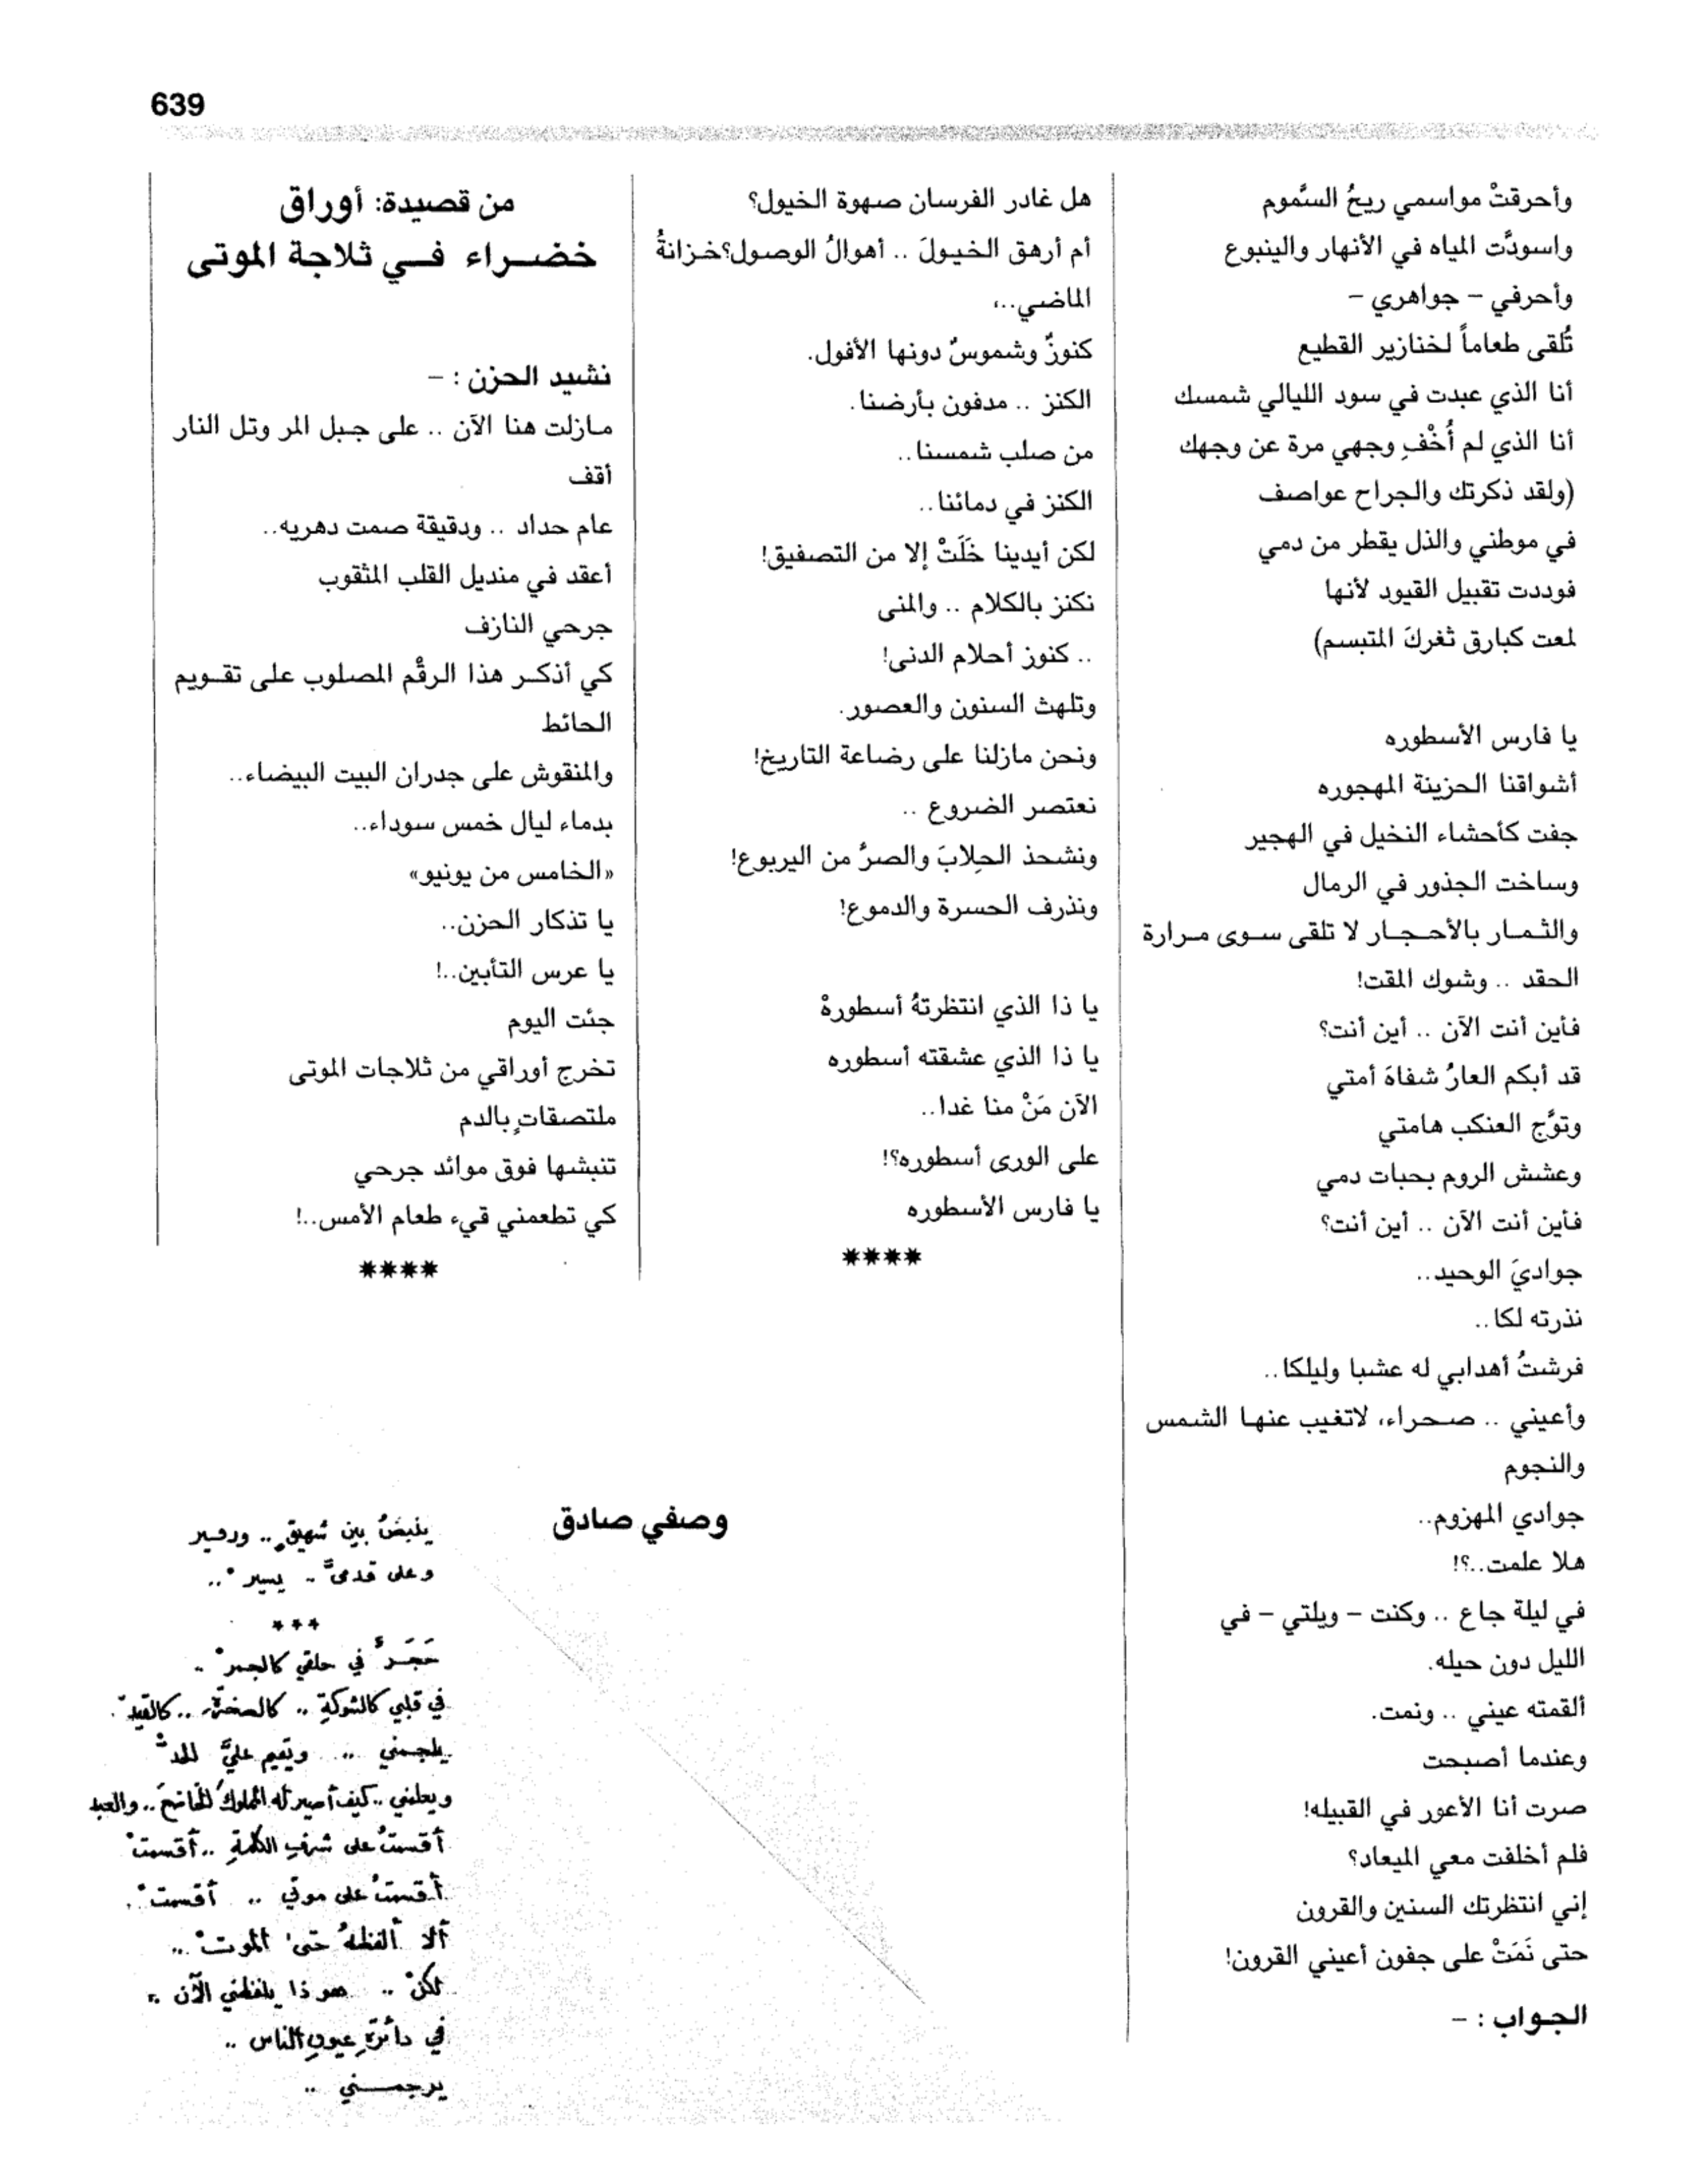 639
وأحرقتْ مواسمي ريحُ السَّموم
واسودَّت المياه في الأنهار والينبوع
وأحرفي – جواهري –
تُلقى طعاماً لخنازير القطيع
أنا الذي عبدت في سود الليالي شمسك
أنا الذي لم أُخْفِ وجهي مرة عن وجهك
(ولقد ذكرتك والجراح عواصف
في موطني والذل يقطر من دمي
فوددت تقبيل القيود لأنها
لمعت كبارق ثغركَ المتبسم)
يا فارس الأسطوره
أشواقنا الحزينة المهجوره
جفت كأحشاء النخيل في الهجير
وساخت الجذور في الرمال
والثمار بالأحجار لا تلقى سوى مرارة
الحقد .. وشوك المقت!
فأين أنت الآن .. أين أنت؟
قد أبكم العارُ شفاهَ أمتي
وتوَّج العنكب هامتي
وعشش الروم بحبات دمي
فأين أنت الآن .. أين أنت؟
جواديَ الوحيد..
نذرته لكا..
فرشتُ أهدابي له عشبا وليلكا..
وأعيني .. صحراء، لاتغيب عنها الشمس
والنجوم
جوادي المهزوم..
هلا علمت..؟!
في ليلة جاع .. وكنت – ويلتي – في
الليل دون حيله.
ألقمته عيني .. ونمت.
وعندما أصبحت
صرت أنا الأعور في القبيله!
فلم أخلفت معي الميعاد؟
إني انتظرتك السنين والقرون
حتى نَمَتْ على جفون أعيني القرون!
الجواب : –
هل غادر الفرسان صهوة الخيول؟
أم أرهق الخيولَ .. أهوالُ الوصول؟خزانةُ
الماضي..،
كنوزٌ وشموسٌ دونها الأفول.
الكنز .. مدفون بأرضنا.
من صلب شمسنا..
الكنز في دمائنا..
لكن أيدينا خَلَتْ إلا من التصفيق!
نكنز بالكلام .. والمنى
.. كنوز أحلام الدنى!
وتلهث السنون والعصور.
ونحن مازلنا على رضاعة التاريخ!
نعتصر الضروع ..
ونشحذ الحِلابَ والصرَّ من اليربوع!
ونذرف الحسرة والدموع!
يا ذا الذي انتظرتهُ أسطورهْ
يا ذا الذي عشقته أسطوره
الآن مَنْ منا غدا..
على الورى أسطوره؟!
يا فارس الأسطوره
****
من قصيدة: أوراق
خضراء في ثلاجة الموتى
نشيد الحزن : –
مازلت هنا الآن .. على جبل المر وتل النار
أقف
عام حداد .. ودقيقة صمت دهريه..
أعقد في منديل القلب المثقوب
جرحي النازف
كي أذكر هذا الرقْم المصلوب على تقويم
الحائط
والمنقوش على جدران البيت البيضاء..
بدماء ليال خمس سوداء..
«الخامس من يونيو»
يا تذكار الحزن..
يا عرس التأبين..!
جئت اليوم
تخرج أوراقي من ثلاجات الموتى
ملتصقاتٍ بالدم
تنبشها فوق موائد جرحي
كي تطعمني قيء طعام الأمس..!
****
وصفي صادق
ينبضُ بين شهيقٍ .. وزفير
وعلى قدمىَّ .. يسير ..
***
حَجَرٌ في حلقي كالجمرْ ..
في قلبي كالشوكةِ .. كالصخرةِ .. كالقيدْ .
يلجمني .. ويقيم عليَّ الحدْ
ويعلمني .. كيف أصير له المملوكَ الخاضعَ .. والعبد
أقسمتُ على شرفِ الكلمةِ .. أقسمتْ
أقسمتُ على موتي .. أقسمتْ .
ألا ألفظهُ حتى الموتْ ..
لكنْ .. هو ذا يلفظني الآن ..
في دائرةِ عيونِ الناس ..
يرجمــني ..